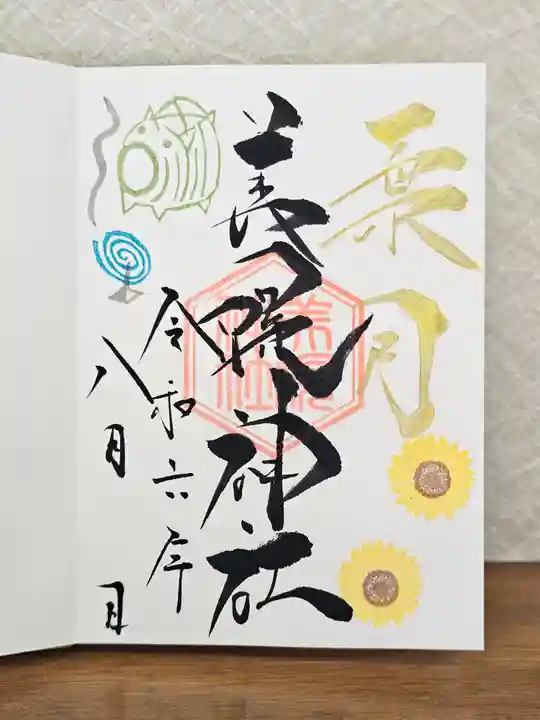 葉月
神社
令和六年
八月 日